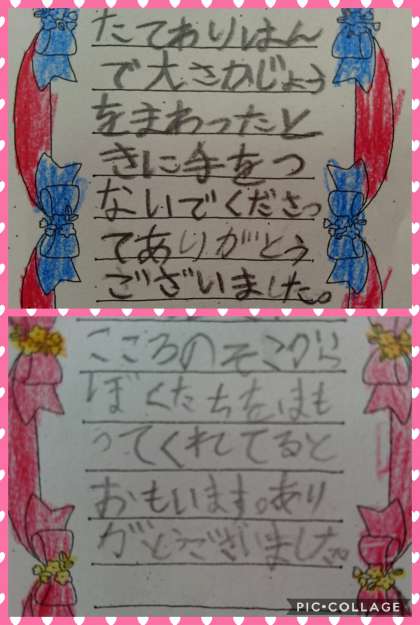 たてありはん
で大さかじょう
をまわったと
きに手をつ
ないでくださっ
てありがとう
ございました。
こころのそこから
ぼくたちをまも
ってくれてると
おもいます。あり
がとうございました。
PIC•COLLAGE